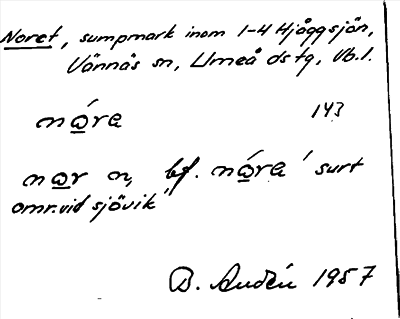 Noret, sumpmark inom 1-4 Hjåggsjön,
Vännäs sn, Umeå dstg, Vb.l.
nóra 143
nor n, bf. nóra "surt
omr. vid sjövik"
1957